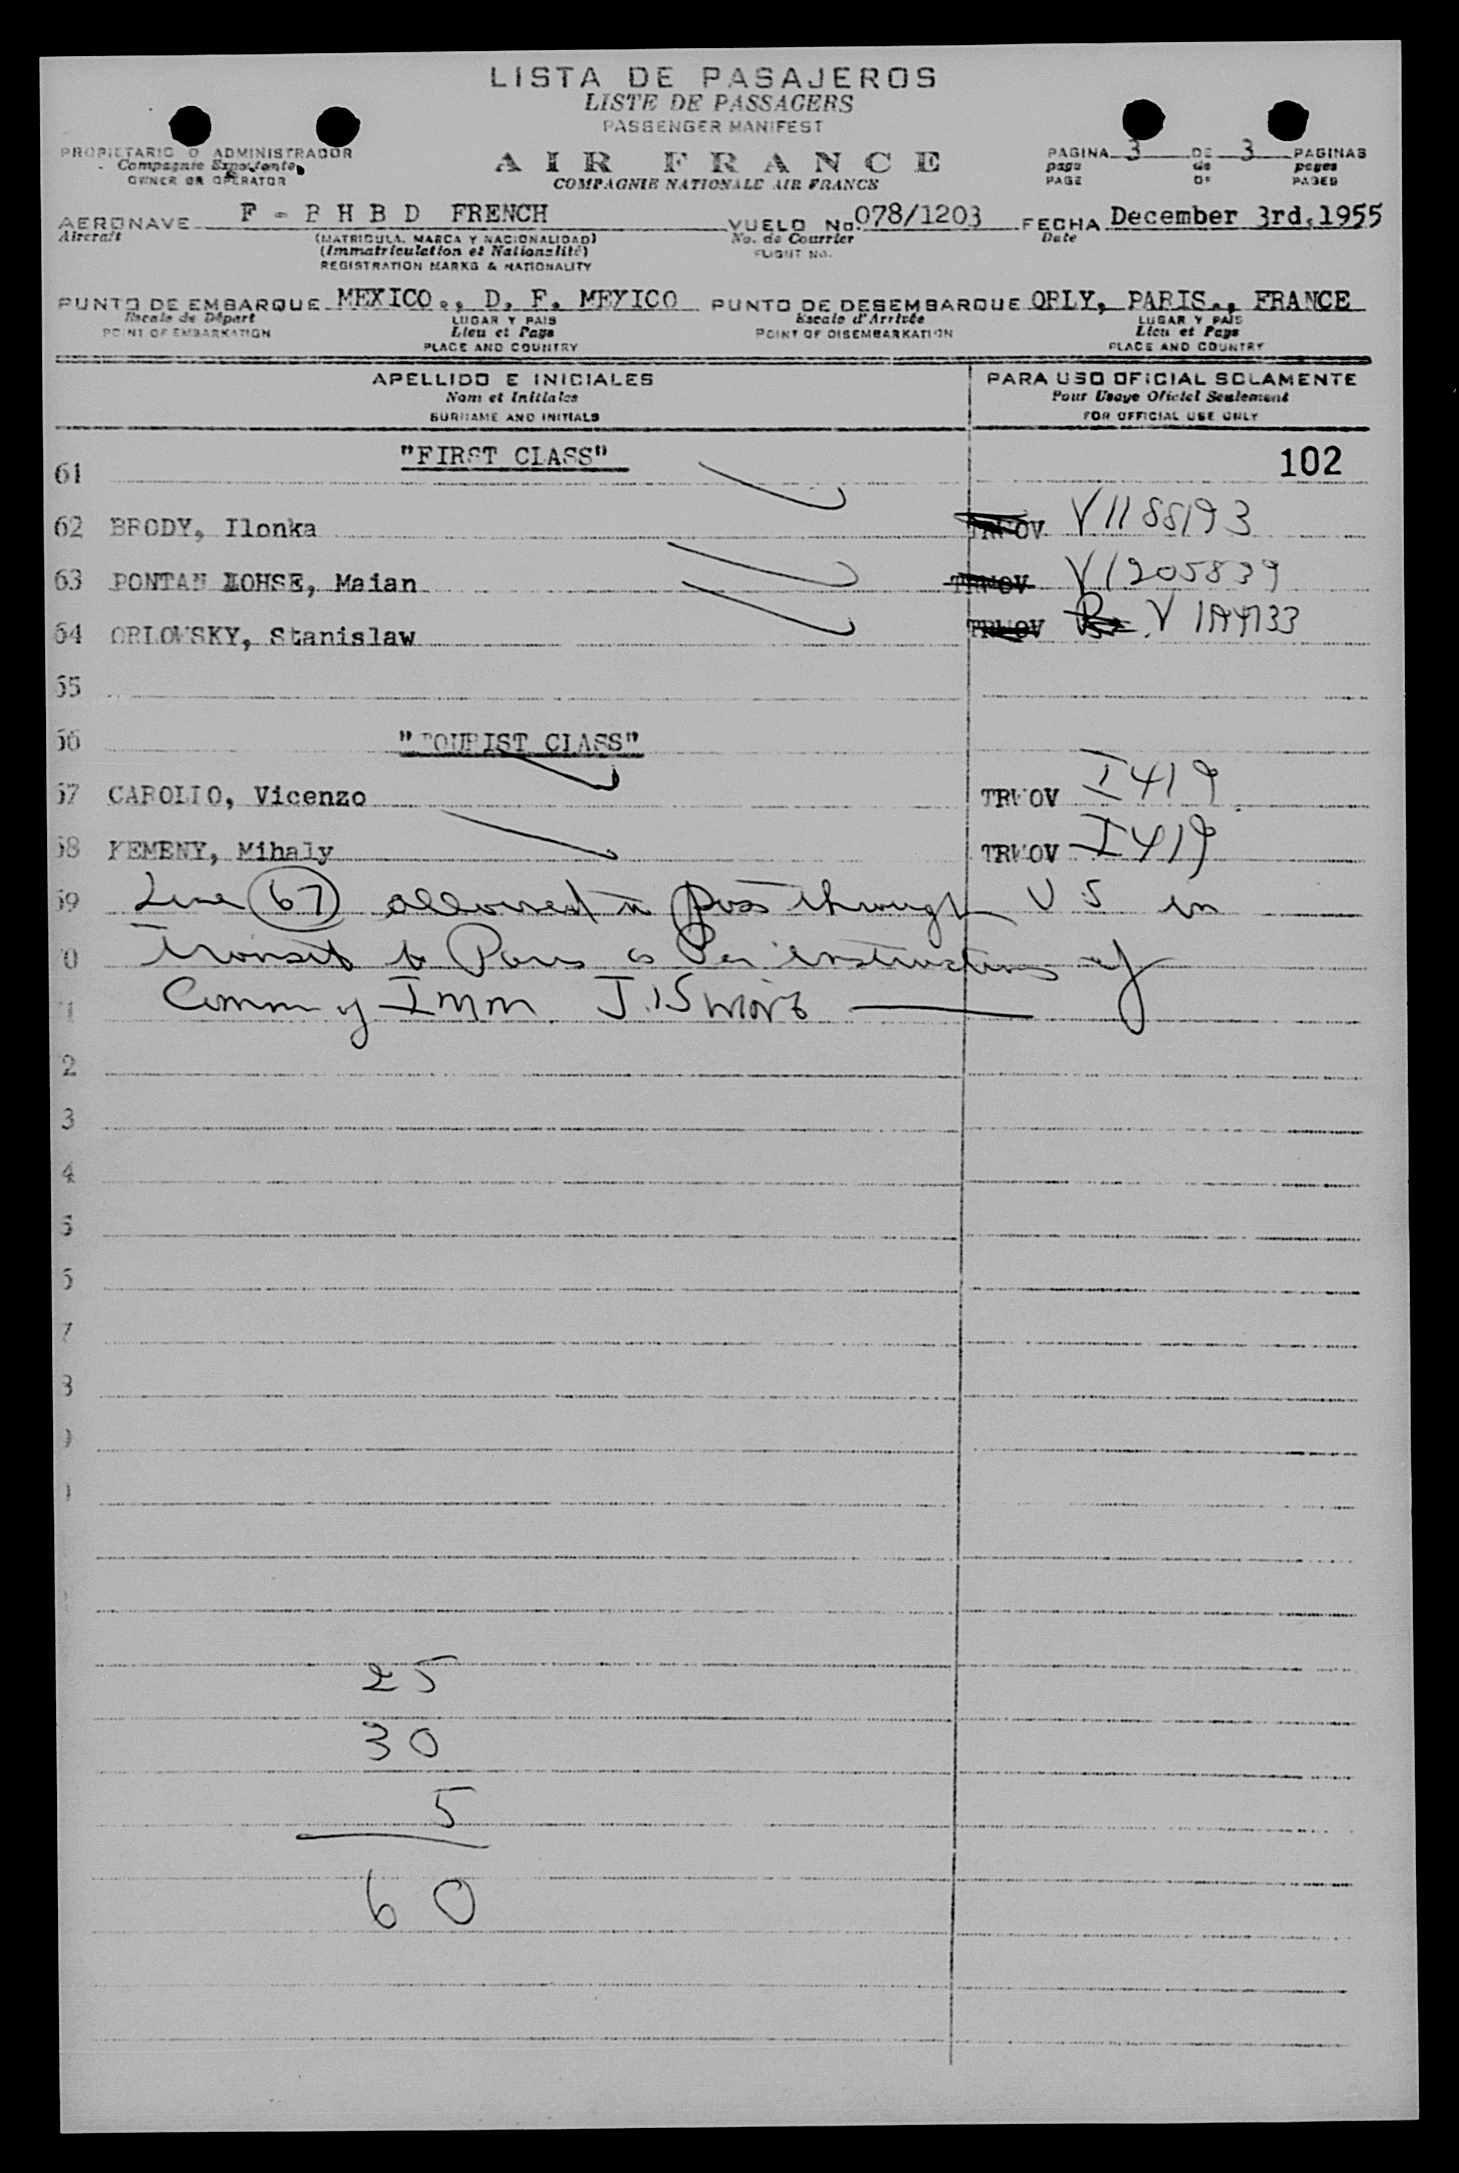 LISTA DE PASAJEROS
LISTE DE PASSAGERS
PASSENGER MANIFEST
PROPIETARIO O ADMINISTRADOR
Compagnie Exploitante
OWNER OR OPERATOR
AIR FRANCE
COMPAGNIE NATIONALE AIR FRANCE
PAGINA 3 DE 3 PAGINAS
page de pages
PAGE OF PAGES
AERONAVE F - B H B D FRENCH VUELO No. 078/1203 FECHA December 3rd,1955
Aircraft (MATRICULA, MARCA Y NACIONALIDAD) No. de Courrier Date
(Immatriculation et Nationalité) FLIGHT NO.
REGISTRATION MARKS & NATIONALITY
PUNTO DE EMBARQUE MEXICO., D. F. MEXICO PUNTO DE DESEMBARQUE ORLY, PARIS., FRANCE
Escale de Départ LUGAR Y PAIS Escale d'Arrivée LUGAR Y PAIS
POINT OF EMBARKATION Lieu et Pays POINT OF DISEMBARKATION Lieu et Pays
PLACE AND COUNTRY PLACE AND COUNTRY
APELLIDO E INICIALES PARA USO OFICIAL SOLAMENTE
Nom et Initiales Pour Usage Officiel Seulement
SURNAME AND INITIALS FOR OFFICIAL USE ONLY
61 "FIRST CLASS" 102
62 BRODY, Ilonka TRWOV V1188193
63 PONTAN LOHSE, Maian TRWOV V1205839
64 ORLOWSKY, Stanislaw TRWOV V
65
66 "TOURIST CLASS"
67 CAROLIO, Vicenzo TRWOV I419
68 KEMENY, Mihaly TRWOV I419
69 Line 67 allowed to pass through U S in
70 transit to Paris as Per instructions of
71 Comm of Imm J.
2
3
4
5
6
7
8
25
30
5
60